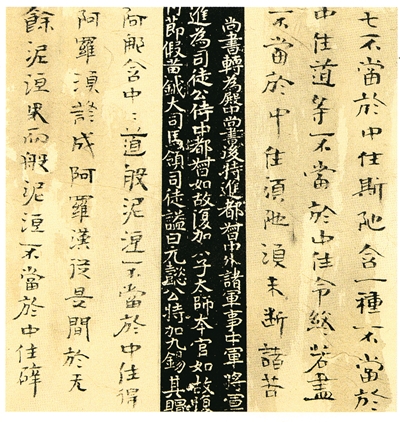 七不當於中住斯陁含一種不當於
中住道等不當於中住命終若盡
不當於中住須陁須未断諸苦
尚書轉為殿中尚書後特進都督中外諸軍事中軍將
進為司徒公侍中都督如故復加公子太師本官如故
節假黃鉞大司馬領司徒謚曰元懿公特加九錫其贈
阿那含中〻道般泥洹不當於中住得
阿羅漢證成阿羅漢從是間於无
餘泥洹界而般泥洹不當於中住辟